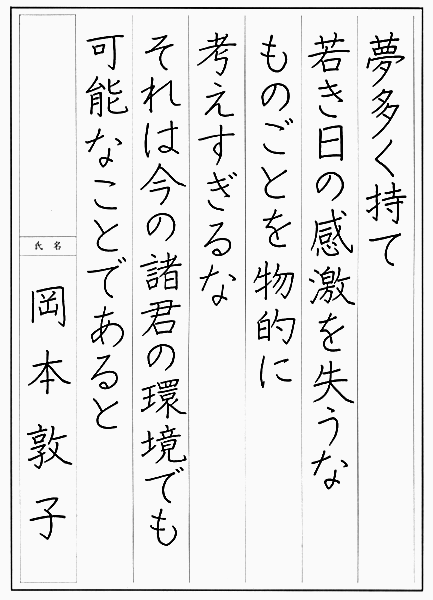 夢多く持て
若き日の感激を失うな
ものごとを物的に
考えすぎるな
それは今の諸君の環境でも
可能なことであると
氏名
岡本敦子